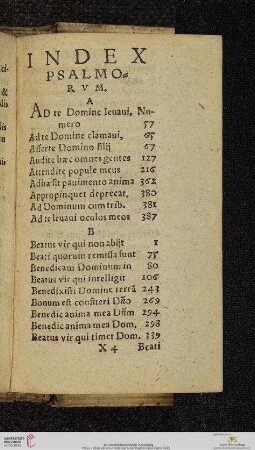 INDEX
PSALMO-
RVM.
A
AD te Domine leuaui, Nu-
mero 57
Ad te Domine clamaui. 65
Afferte Domino filij 67
Audite hæc omnes gentes 127
Attendite popule meus 216
Adhæsit pauimento anima 362
Appropinquet deprecat. 380
Ad Dominum cum trib. 381
Ad te leuaui oculos meos 387
B
Beatus vir qui non abijt 1
Beati quorum remissa sunt 75
Benedicam Dominum in 80
Beatus vir qui intelligit 106
Benedixisti Domine terrã 243
Bonum est confiteri Dño 269
Benedic anima mea Dñm 294
Benedic anima mea Dom. 298
Beatus vir qui timet Dom. 339
X 4 Beati